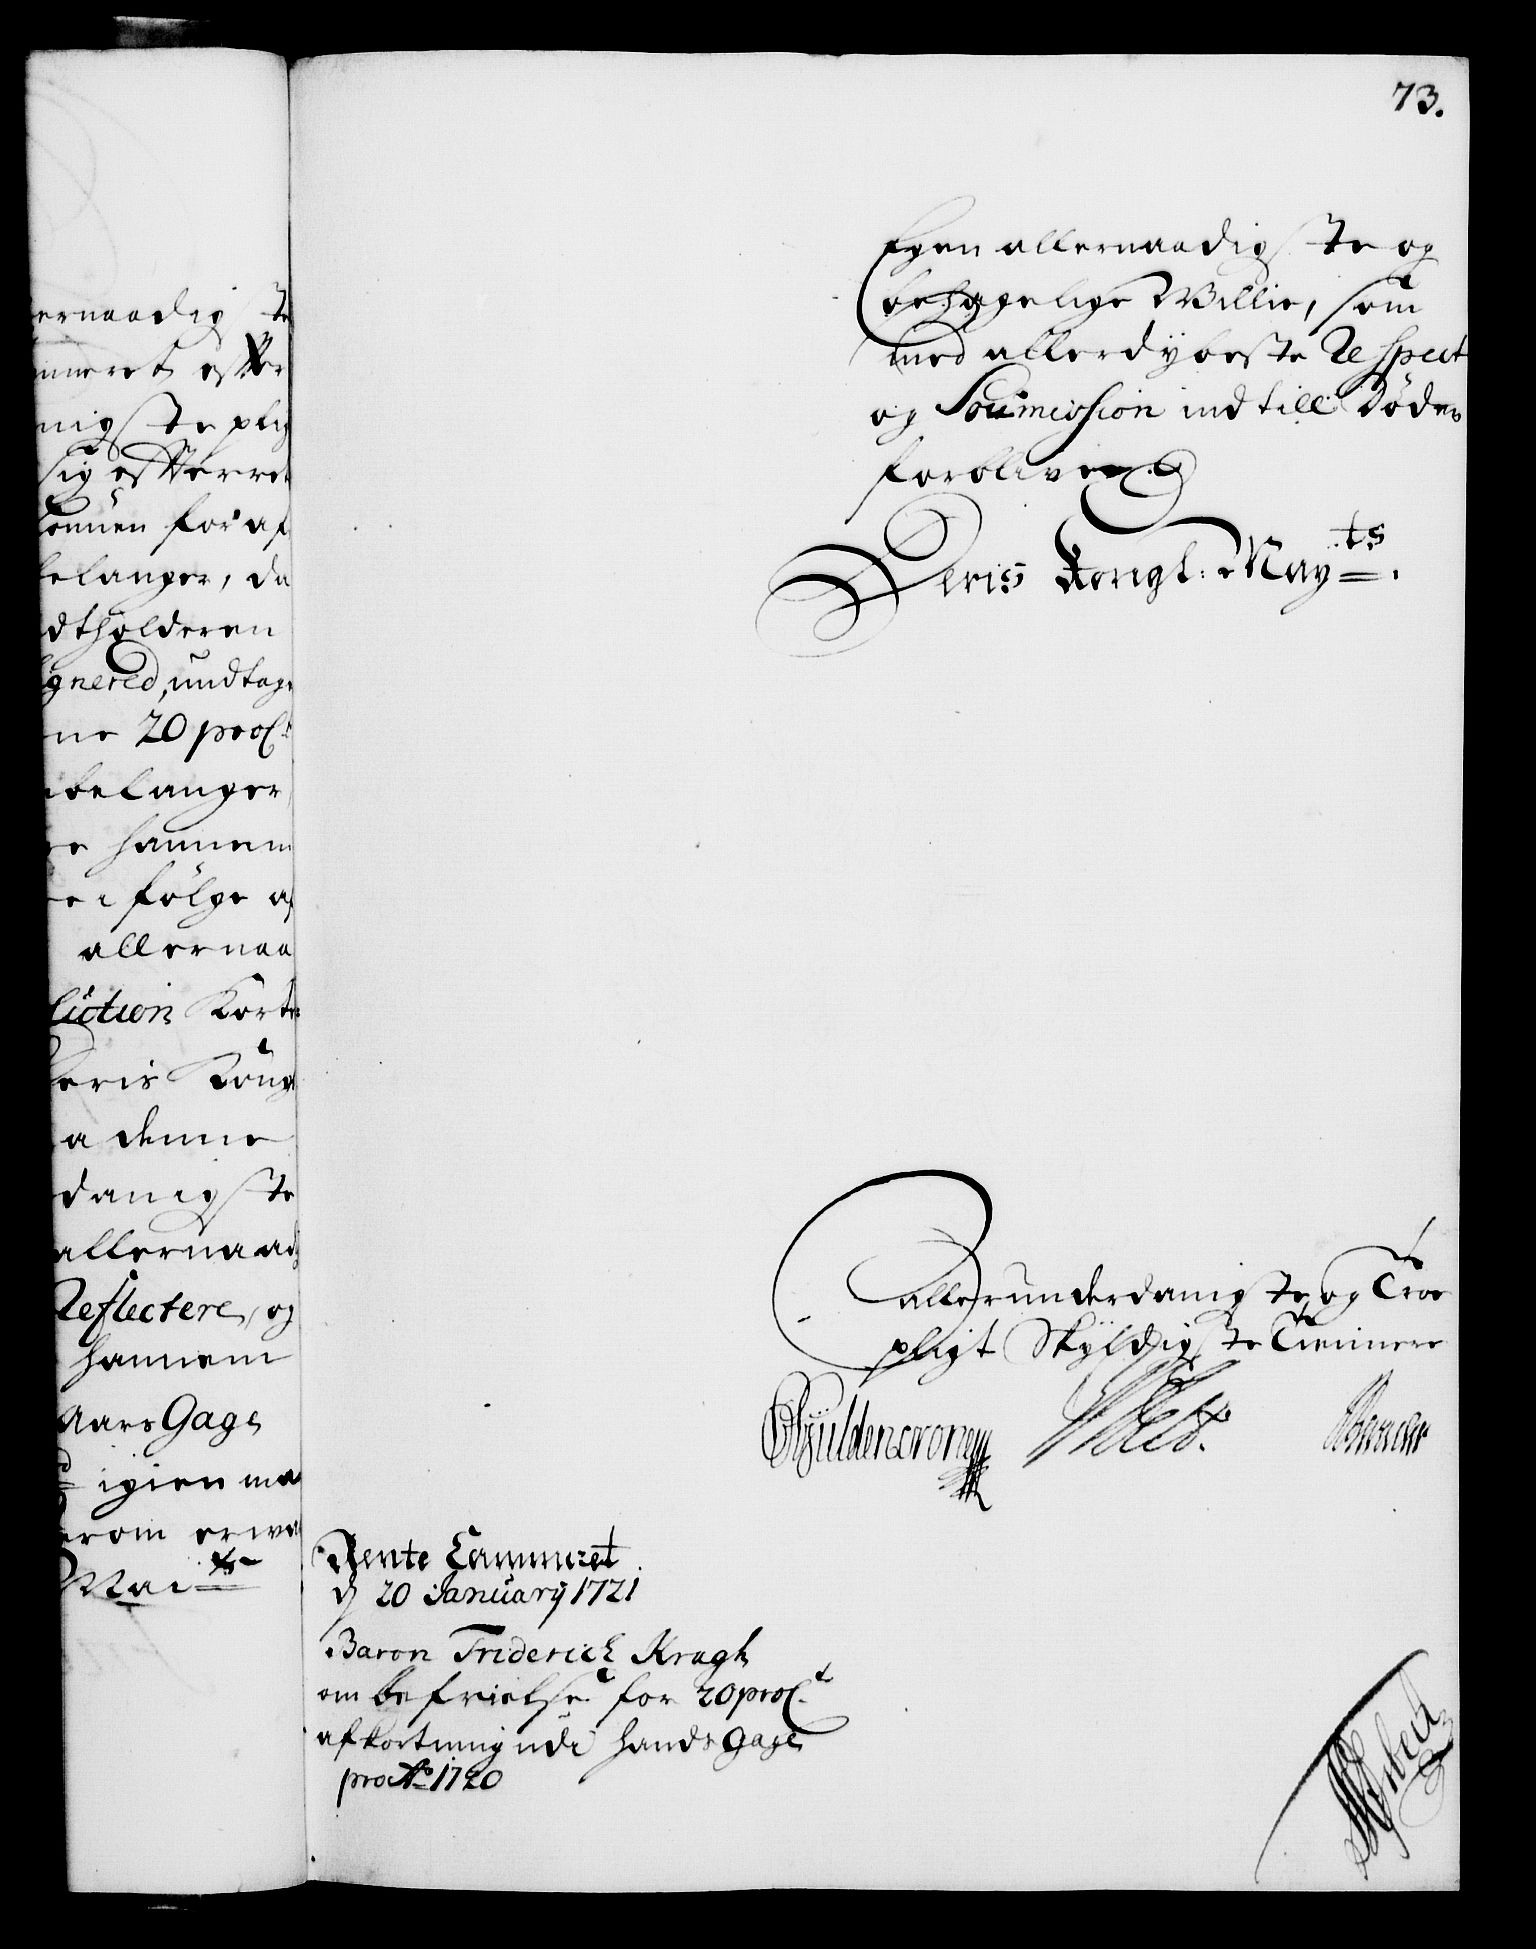 73.
ernaadigste
mmeret efter
nigste plig
sig efterret
kommen for af
belanger, da
dtholderen
gnered, undtage
ne 20 proCt
belanger
hannem
følge af
allernaa
lution Kort
Deris Kong
a denne
danigste
allernaad
Reflectere, og
hannem
Aars Gage
igien ma
erom erwa
May.ts
Egen allernaadigste og
behagelige Willie, som
med allerdybeste Respect
og Soumission indtill Døden
forbliver
Deris Kongl: May.ts
allerunderdanigste, og Troe
pligt Skyldigste Tienere
Gyldencrone
Rente Cammeret
d 20 January 1721
Baron Friderich Kragh
om befrielse for 20 proCt
afkortning udi hands Gage
pro Ao 1720